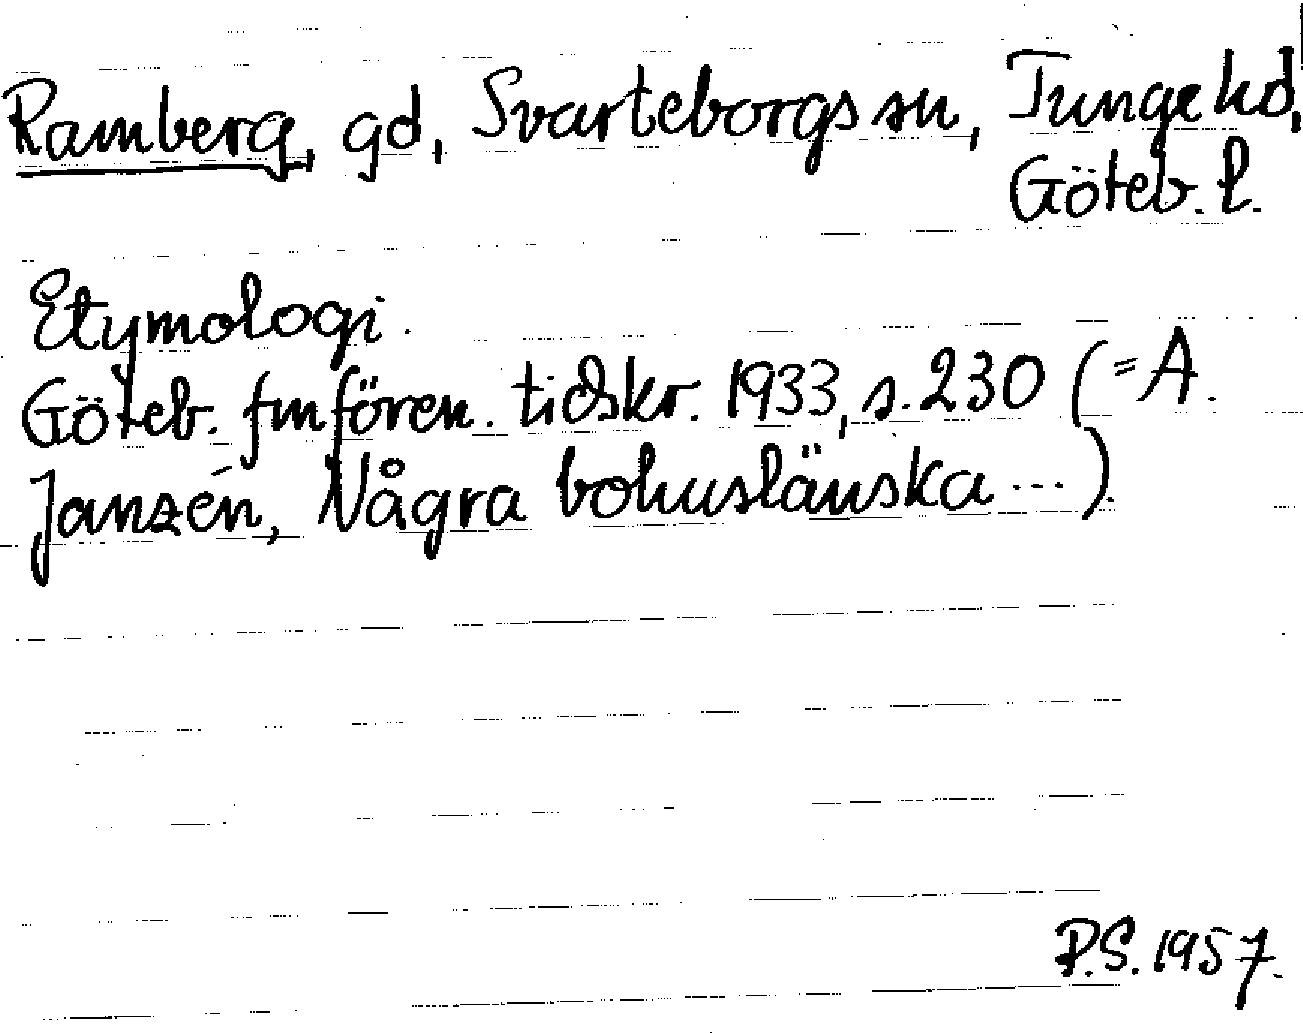 Ramberg, gd, Svarteborgs sn, Tunge hd,
Göteb. l.
Etymologi.
Göteb. fmfören. tidskr. 1933, s. 230 (= A.
Janzén, Några bohuslänska ...).
P.S. 1957.